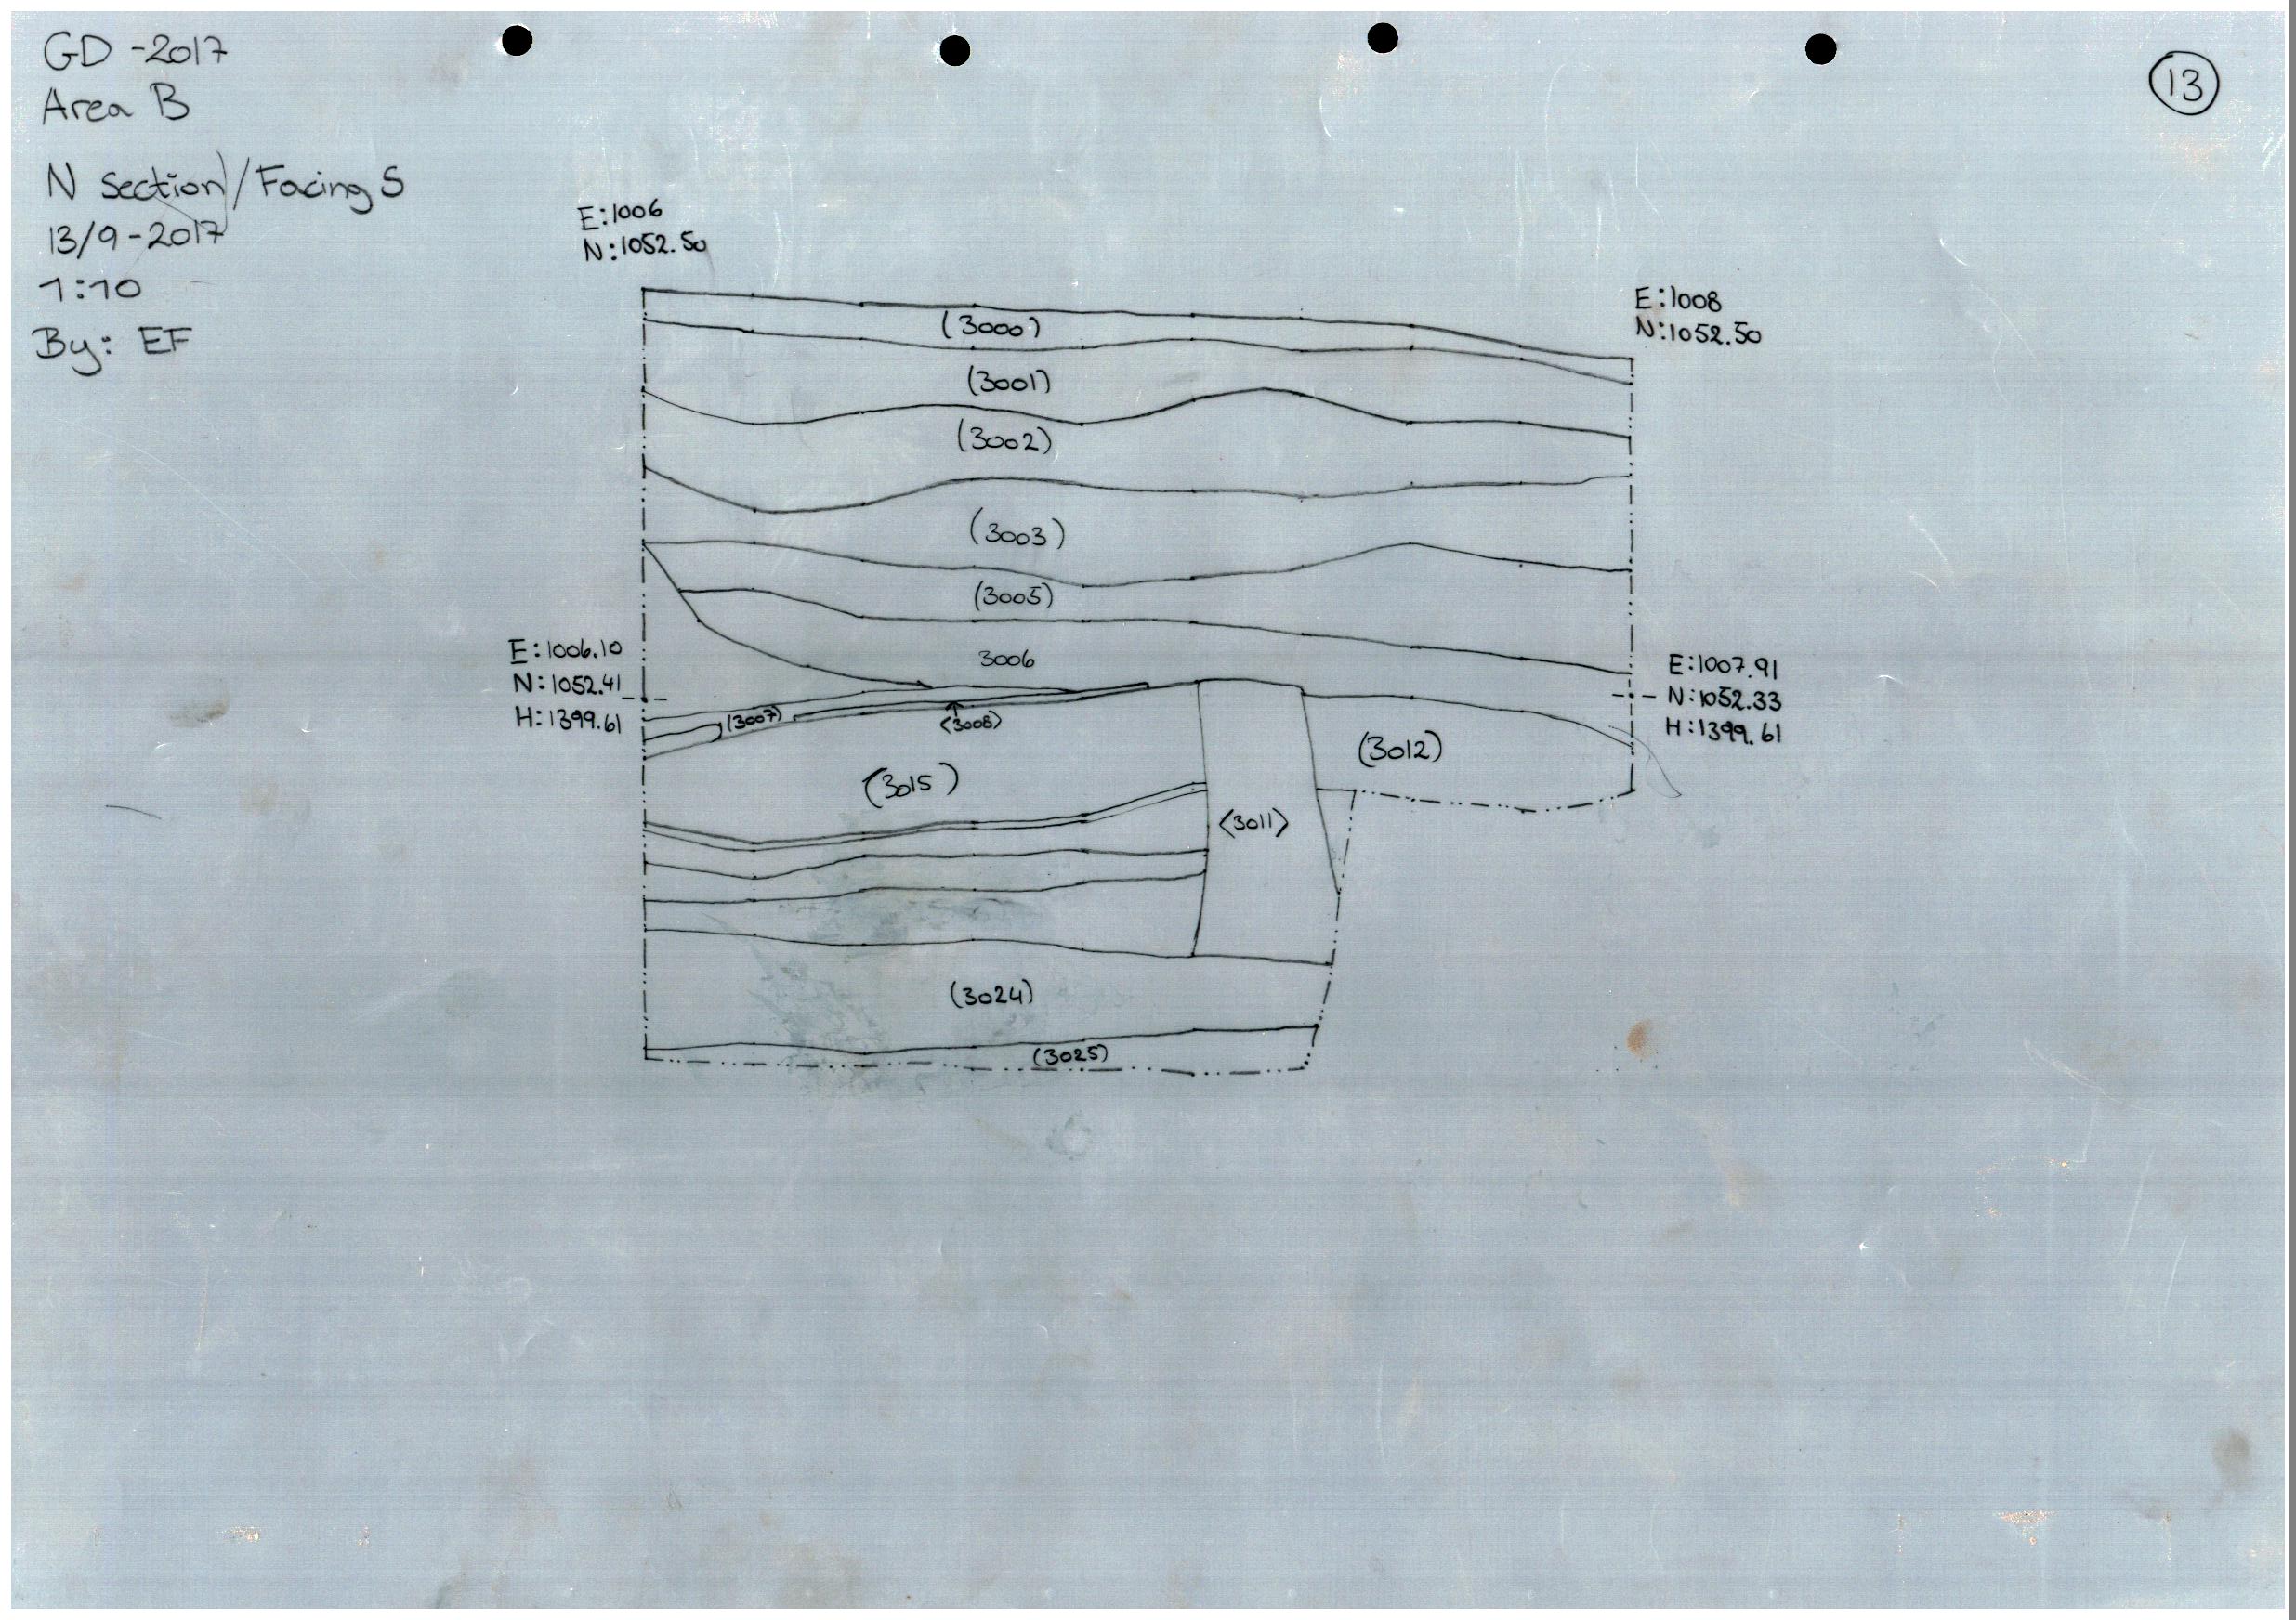 GD -2017
Area B
N section/Facing S
13/9-2017
1:10
By: EF
13
E:1006
N:1052.50
E:1008
N:1052.50
(3000)
(3001)
(3002)
(3003)
(3005)
3006
E:1006.10
N:1052.41
H:1399.61
E:1007.91
N:1052.33
H:1399.61
(3007)
<3008>
(3012)
(3015)
<3011>
(3024)
(3025)